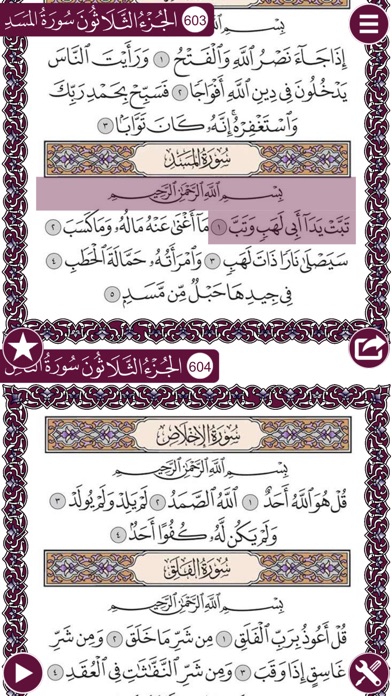 الجُزْءُ الثَّلَاثُونَ سُورَةُ المَسَدِ 603
بِسْمِ اللَّهِ الرَّحْمَٰنِ الرَّحِيمِ
إِذَا جَآءَ نَصْرُ اللَّهِ وَالْفَتْحُ ١ وَرَأَيْتَ النَّاسَ
يَدْخُلُونَ فِي دِينِ اللَّهِ أَفْوَاجًا ٢ فَسَبِّحْ بِحَمْدِ رَبِّكَ
وَاسْتَغْفِرْهُ إِنَّهُ كَانَ تَوَّابًا ٣
سُورَةُ المَسَدِ
بِسْمِ اللَّهِ الرَّحْمَٰنِ الرَّحِيمِ
تَبَّتْ يَدَآ أَبِي لَهَبٍ وَتَبَّ ١ مَآ أَغْنَىٰ عَنْهُ مَالُهُ وَمَا كَسَبَ ٢
سَيَصْلَىٰ نَارًا ذَاتَ لَهَبٍ ٣ وَامْرَأَتُهُ حَمَّالَةَ الْحَطَبِ ٤
فِي جِيدِهَا حَبْلٌ مِّن مَّسَدٍ ٥
الجُزْءُ الثَّلَاثُونَ سُورَةُ 604
سُورَةُ الإِخْلَاصِ
بِسْمِ اللَّهِ الرَّحْمَٰنِ الرَّحِيمِ
قُلْ هُوَ اللَّهُ أَحَدٌ ١ اللَّهُ الصَّمَدُ ٢ لَمْ يَلِدْ وَلَمْ يُولَدْ ٣
وَلَمْ يَكُن لَّهُ كُفُوًا أَحَدٌ ٤
سُورَةُ الفَلَقِ
بِسْمِ اللَّهِ الرَّحْمَٰنِ الرَّحِيمِ
قُلْ أَعُوذُ بِرَبِّ الْفَلَقِ ١ مِن شَرِّ مَا خَلَقَ ٢ وَمِن شَرِّ
غَاسِقٍ إِذَا وَقَبَ ٣ وَمِن شَرِّ النَّفَّاثَاتِ فِي الْعُقَدِ ٤